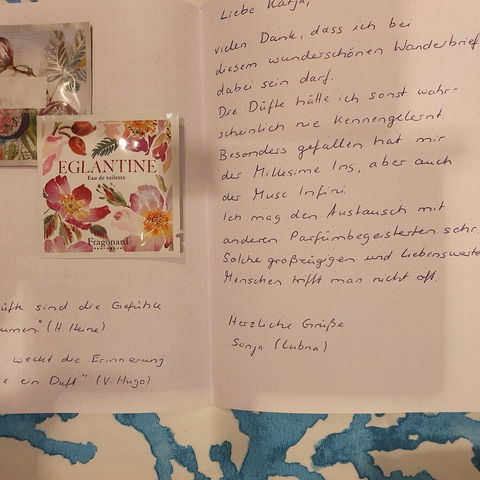 EGLANTINE
Eau de toilette
Fragonard
üfte sind die Gefühle
umen." (H. Heine)
weckt die Erinnerung
e ein Duft" (V. Hugo)
Liebe Katja,
vielen Dank, dass ich bei
diesem wunderschönen Wanderbrief
dabei sein darf.
Die Düfte hätte ich sonst wahr-
scheinlich nie kennengelernt.
Besonders gefallen hat mir
der Millesime Iris, aber auch
der Musc Infini.
Ich mag den Austausch mit
anderen Parfümbegeisterten sehr.
Solche großzügigen und liebenswerte
Menschen trifft man nicht oft.
Herzliche Grüße
Sonja (Lubna)